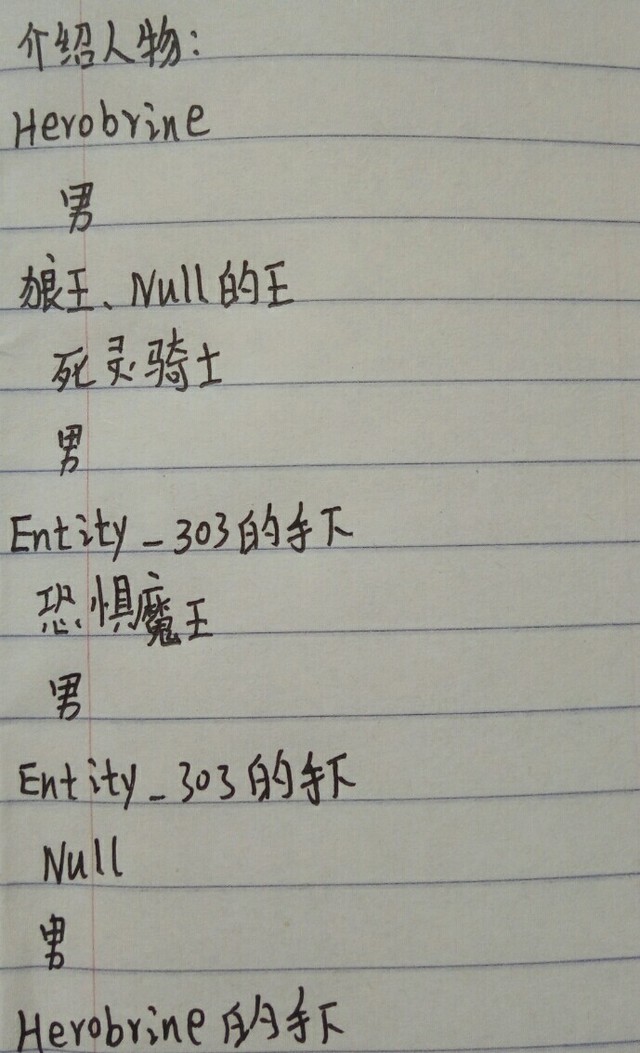 介绍人物：
Herobrine
男
狼王、Null的王
死灵骑士
男
Entity_303的手下
恐惧魔王
男
Entity_303的手下
Null
男
Herobrine的手下